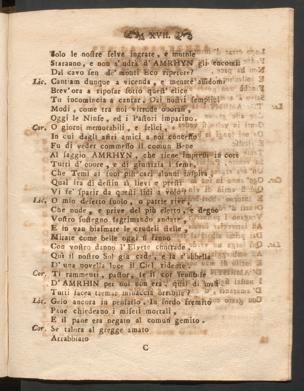 XVII.
Solo le nostre selve ingrate, e mutole
Staranno, e non s'udrà d'AMRHYN gli encomii
Dal cavo sen de' monti Eco ripetere?
Lic. Cantiam dunque a vicenda, e mentre assidomi
Brev'ora a riposar sotto quest' elice
Tu incomincia a cantar; Dai nostri semplici
Modi, come tra noi virtude onorasi,
Oggi le Ninfe, ed i Pastori imparino.
Cor. O giorni memorabili, e felici,
In cui dagli astri amici a noi concesso
Fu di veder commesso il comun Bene
Al saggio AMRHYN, che tiene impressi in core
Tutti d'onore, e di giustizia i semi,
Che Temi ai suoi più cari alunni inspira;
Qual fra di destin sì lievi e presti
Vi fe' sparir da questi lidi a volo!
Lic. O mio deserto suolo, o patrie rive,
Che nude, e prive del più eletto, e degno
Vostro sostegno lagrimando andate,
E in van biasmate le crudeli stelle,
Mirate come belle oggi si fanno
Con vostro danno l'Elvete contrade,
Quì il nostro Sol già cade, e là s'abbella
D'una novella luce il Ciel ridente.
Cor. Ti rammenti, pastor, se il cor sensibile
D'AMRHIN per noi non era, quali di musi
Tutti facea tremar minaccia orribile?
Lic. Gelo ancora in pensarlo. In sordo fremito
Pane chiedeano i miseri mortali,
E il pane era negato al comun gemito.
Cor. Se talora al gregge amato
Arrabbiato
C